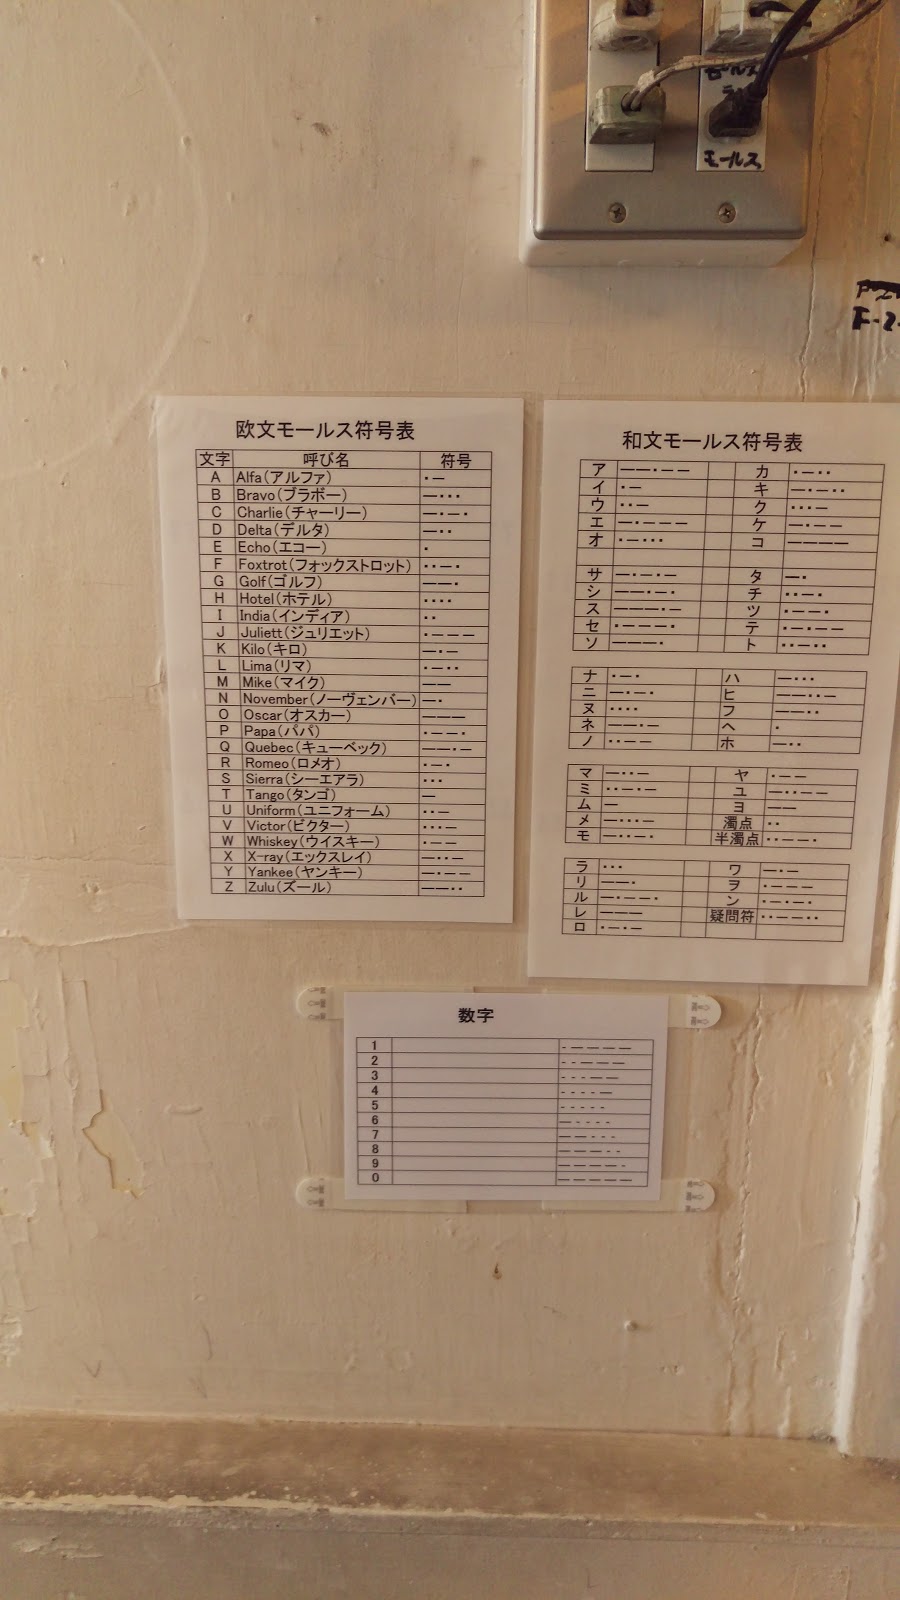 モールス
F-2
欧文モールス符号表
文字 呼び名 符号
A Alfa(アルファ) ・—
B Bravo(ブラボー) —・・・
C Charlie(チャーリー) —・—・
D Delta(デルタ) —・・
E Echo(エコー) ・
F Foxtrot(フォックストロット) ・・—・
G Golf(ゴルフ) ——・
H Hotel(ホテル) ・・・・
I India(インディア) ・・
J Juliett(ジュリエット) ・———
K Kilo(キロ) —・—
L Lima(リマ) ・—・・
M Mike(マイク) ——
N November(ノーヴェンバー) —・
O Oscar(オスカー) ———
P Papa(パパ) ・——・
Q Quebec(キューベック) ——・—
R Romeo(ロメオ) ・—・
S Sierra(シーエアラ) ・・・
T Tango(タンゴ) —
U Uniform(ユニフォーム) ・・—
V Victor(ビクター) ・・・—
W Whiskey(ウイスキー) ・——
X X-ray(エックスレイ) —・・—
Y Yankee(ヤンキー) —・——
Z Zulu(ズール) ——・・
和文モールス符号表
ア ——・—— カ ・—・・
イ ・— キ —・—・・
ウ ・・— ク ・・・—
エ —・——— ケ —・——
オ ・—・・・ コ ————
サ —・—・— タ —・
シ ——・—・ チ ・・—・
ス ———・— ツ ・——・
セ ・———・ テ ・—・——
ソ ———・ ト ・・—・・
ナ ・—・ ハ —・・・
ニ —・—・ ヒ ——・・—
ヌ ・・・・ フ ——・・
ネ ——・— ヘ ・
ノ ・・—— ホ —・・
マ —・・— ヤ ・——
ミ ・・—・— ユ —・・——
ム — ヨ ——
メ —・・・— 濁点 ・・
モ —・・—・ 半濁点 ・・——・
ラ ・・・ ワ —・—
リ ——・ ヲ ・———
ル —・——・ ン ・—・—・
レ ——— 疑問符 ・・——・・
ロ ・—・—
数字
1 -————
2 --———
3 ---——
4 ----—
5 -----
6 —----
7 ——---
8 ———--
9 ————-
0 —————